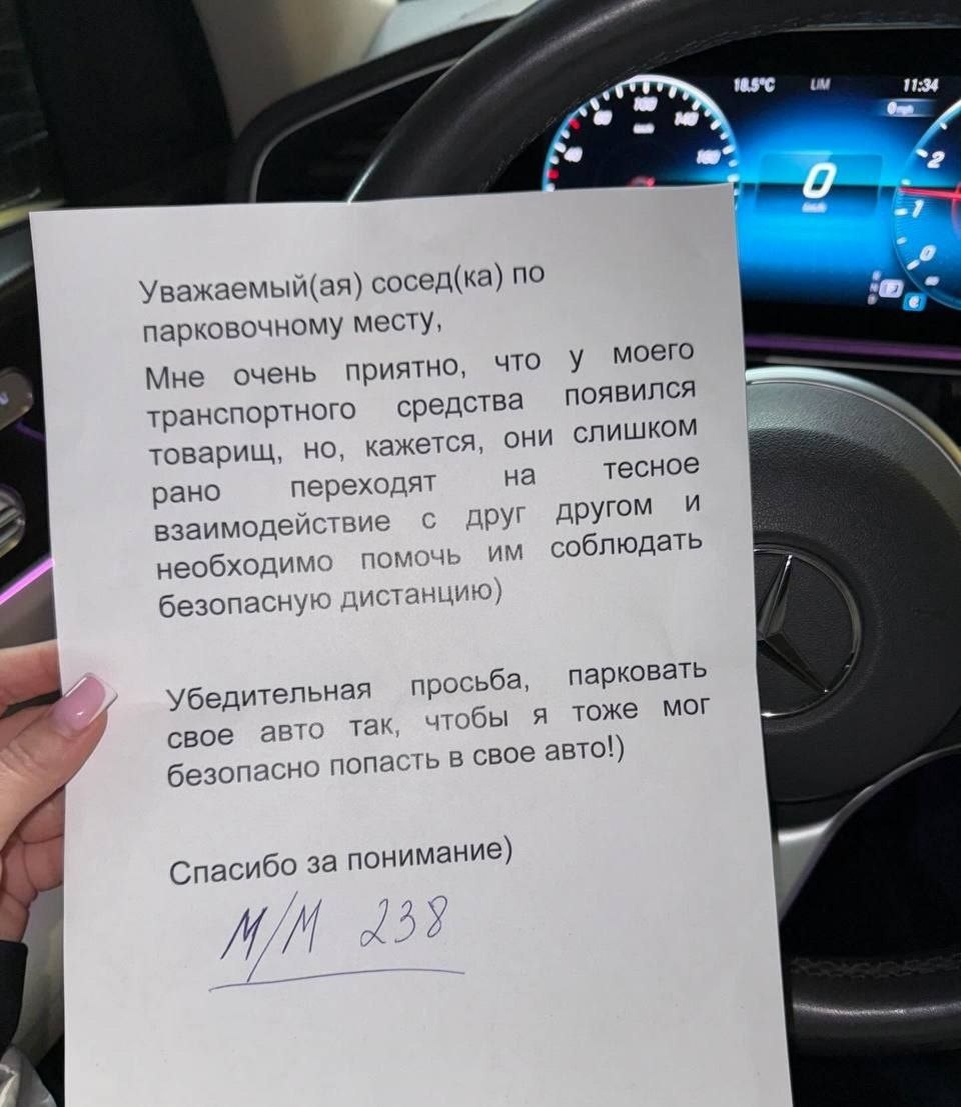 18.5°C
LIM
11:34
0 mph
60
100
140
km/h
40
160
0
km/h
2
1
0
Уважаемый(ая) сосед(ка) по
парковочному месту,
Мне очень приятно, что у моего
транспортного средства появился
товарищ, но, кажется, они слишком
рано переходят на тесное
взаимодействие с друг другом и
необходимо помочь им соблюдать
безопасную дистанцию)
Убедительная просьба, парковать
свое авто так, чтобы я тоже мог
безопасно попасть в свое авто!)
Спасибо за понимание)
М/М 238